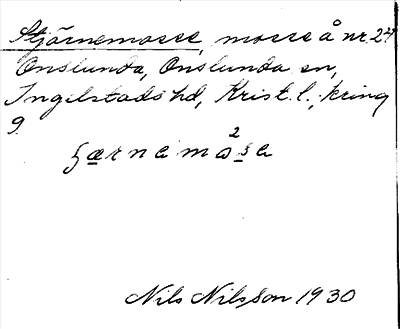 Stjärnemosse, mosse å nr. 24
Onslunda, Onslunda sn,
Ingelstads hd, Krist. l., kring
9.
ʃærnemo²se
Nils Nilsson 1930